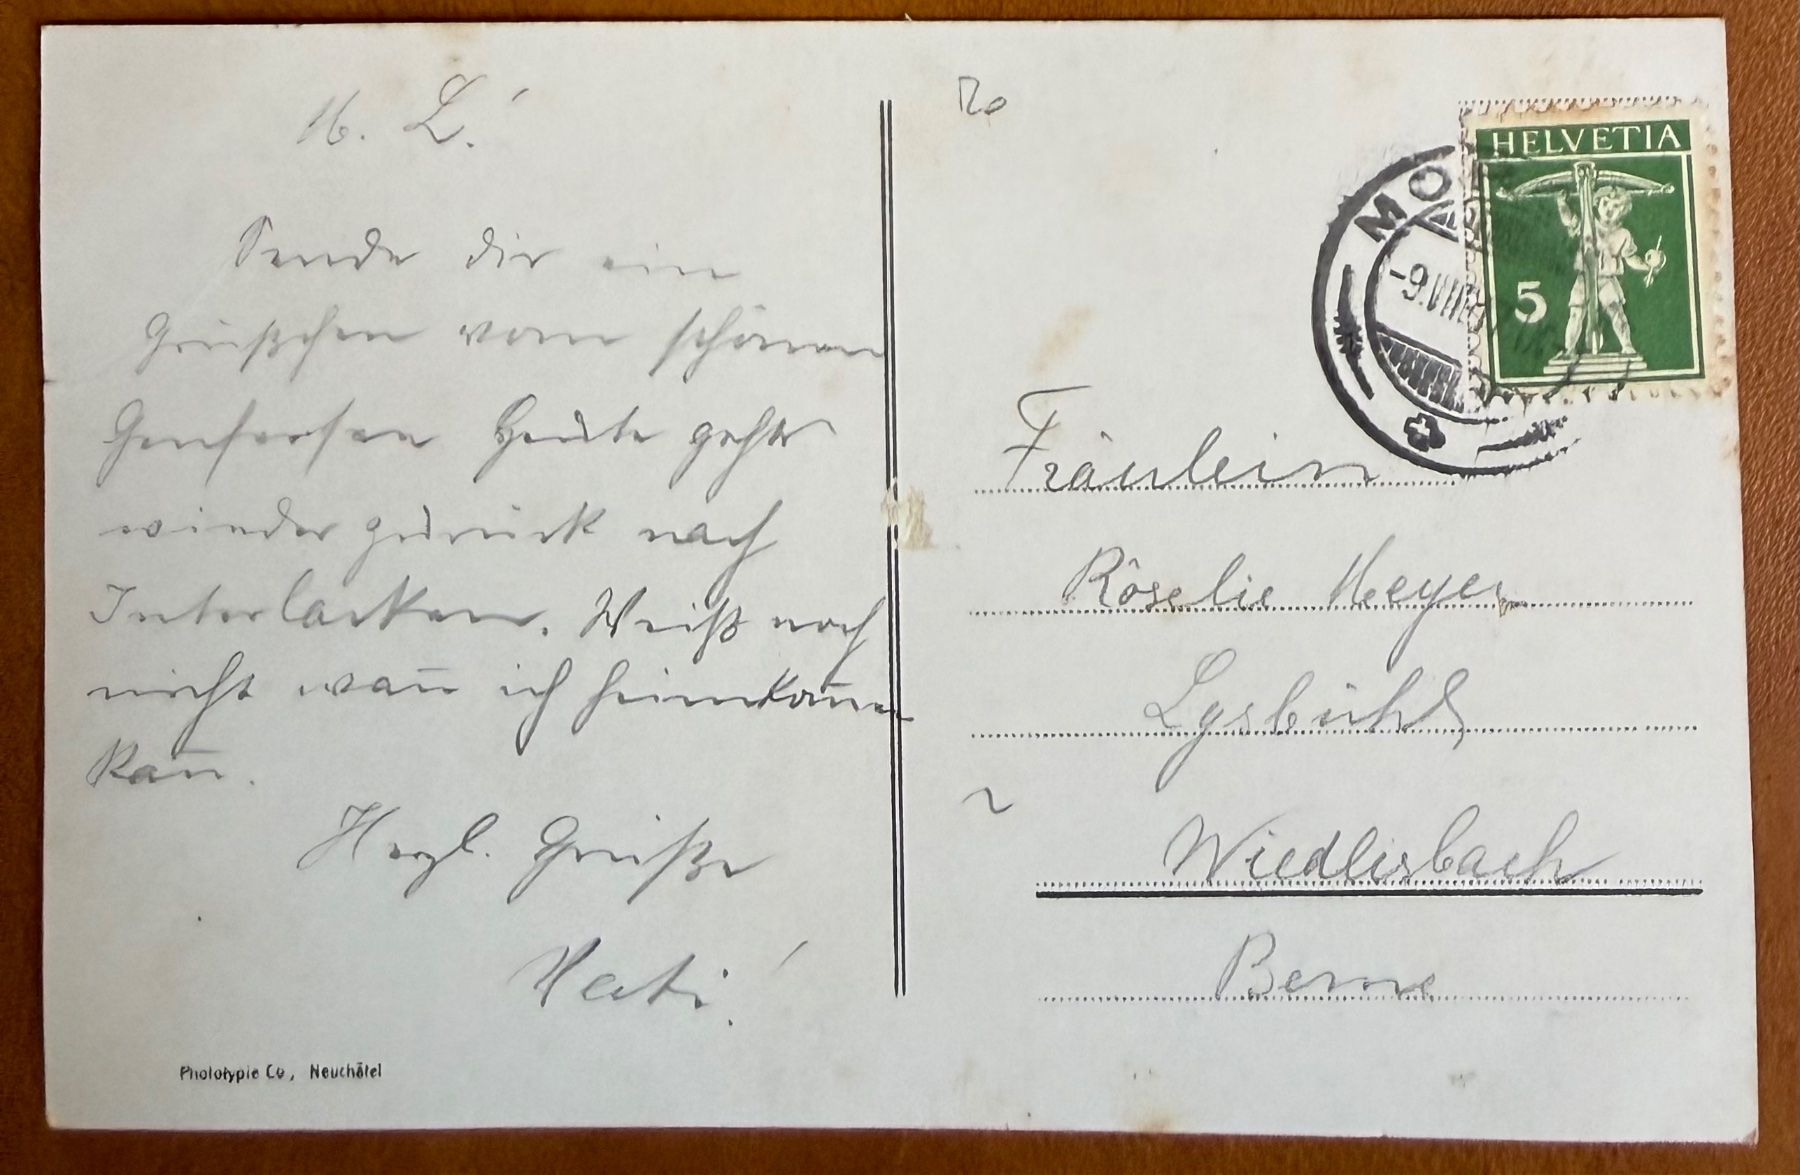 M. L.!
Sende dir ein
Grüßchen vom schönen
Genfersee Heute gehts
wieder zurück nach
Interlacken. Weiß noch
nicht wan̄ ich heimkom̄en
kan̄.
Herzl. Grüße
Hati!
HELVETIA
5
MO
-9.VIII
Fräulein
Röselie Meyer
Lysbühl
Wiedlisbach
Berne
Phototypie Co, Neuchâtel